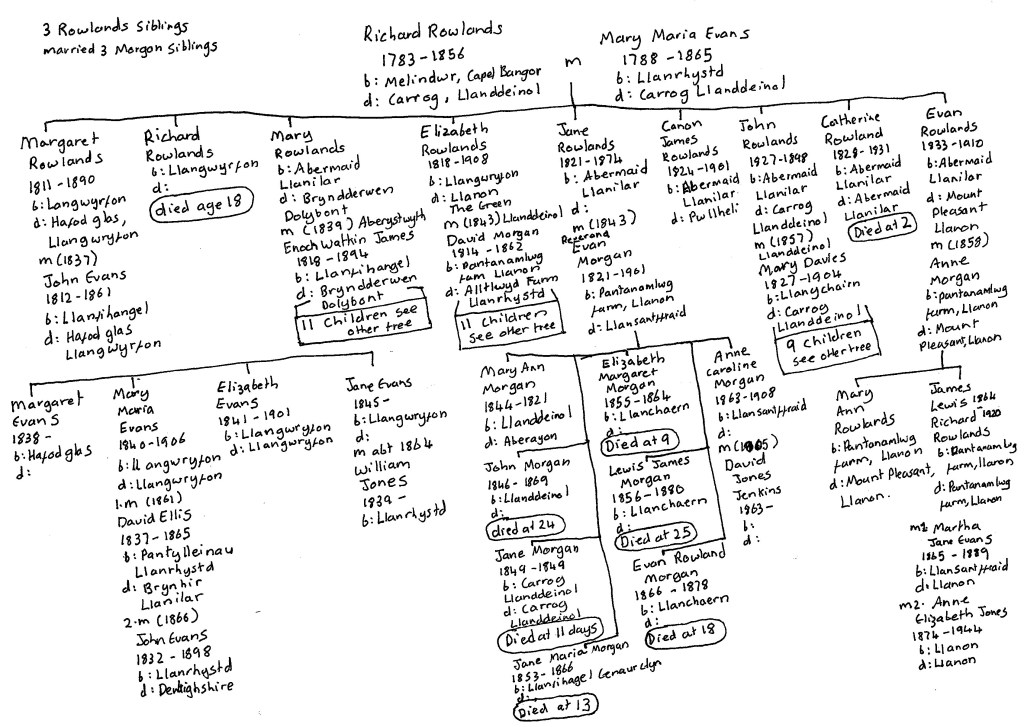 3 Rowlands Siblings
married 3 Morgan Siblings
Richard Rowlands
1783-1856
b: Melindwr, Capel Bangor
d: Carrog, Llanddeinol
m
Mary Maria Evans
1788-1865
b: Llanrhystd
d: Carrog Llanddeinol
Margaret
Rowlands
1811-1890
b: Langwyryfon
d: Hafod glas,
Llangwyryfon
m (1837)
John Evans
1812-1861
b: Llanfihangel
d: Hafod glas
Llangwyryfon
Richard
Rowlands
b: Llangwyryfon
d:
died age 18
Mary
Rowlands
b: Abermaid
Llanilar
d: Bryndderwen
Dolybont
m (1839) Aberystwyth
Enoch Watkin James
1818-1894
b: Llanfihangel
d: Bryndderwen
Dolybont
11 Children see
other tree
Elizabeth
Rowlands
1818-1908
b: Llangwyryon
d: Llanon
The Green
m (1843) Llanddeinol
David Morgan
1814-1862
b: Pantanamlwg
farm Llanon
d: Alltlwyd Farm
Llanrhystd
11 Children
see other tree
Jane
Rowlands
1821-1874
b: Abermaid
Llanilar
d:
m (1843)
Reverand
Evan
Morgan
1821-1961
b: Pantanamlwg
farm, Llanon
d: Llansantffraid
Canon
James
Rowlands
1824-1901
b: Abermaid
Llanilar
d: Pwllheli
John
Rowlands
1827-1898
b: Abermaid
Llanilar
d: Carrog
Llanddeinol
m (1857)
Llanddeinol
Mary Davies
1827-1904
b: Llangchairn
d: Carrog
Llanddeinol
9 Children
see other tree
Catherine
Rowland
1828-1831
b: Abermaid
Llanilar
d: Abermaid
Llanilar
Died at 2
Evan
Rowlands
1833-1910
b: Abermaid
Llanilar
d: Mount
Pleasant
Llanon
m (1858)
Anne
Morgan
b: Pantanamlwg
farm, Llanon
d: Mount
Pleasant, Llanon
Margaret
Evans
1838-
b: Hafod glas
d:
Mary
Maria
Evans
1840-1906
b: Llangwyryfon
d: Llangwyryfon
1.m (1861)
David Ellis
1837-1865
b: Pantylleinau
Llanrhystd
d: Brynhir
Llanilar
2.m (1866)
John Evans
1832-1898
b: Llanrhystd
d: Denbighshire
Elizabeth
Evans
1841-1901
b: Llangwyryfon
d: Llangwyryfon
Jane Evans
1845-
b: Llangwyryfon
d:
m abt 1864
William
Jones
1839-
b: Llanrhystd
Mary Ann
Morgan
1844-1821
b: Llanddeinol
d: Aberayon
John Morgan
1846-1869
b: Llanddeinol
d:
died at 24
Jane Morgan
1849-1849
b: Carrog
Llanddeinol
d: Carrog
Llanddeinol
Died at 11 days
Jane Maria Morgan
1853-1866
b: Llanfihagel Genaur Clyn
d:
Died at 13
Elizabeth
Margaret
Morgan
1855-1864
b: Llanchaern
d:
Died at 9
Lewis James
Morgan
1856-1880
b: Llanchaern
d:
Died at 25
Evan Rowland
Morgan
1866-1878
b: Llanchaern
d:
Died at 18
Anne
Caroline
Morgan
1863-1908
b: Llansantffraid
d:
m (1905)
David
Jones
Jenkins
1863-
b:
d:
Mary
Ann
Rowlands
b: Pantanamlwg
farm, Llanon
d: Mount Pleasant,
Llanon.
James
Lewis 1864
Richard -1920
Rowlands
b: Pantanamlwg
farm, llanon
d: Pantanamlwg
farm, Llanon
m1: Martha
Jane Evans
1865-1889
b: Llansantffraid
d: Llanon
m2. Anne
Elizabeth Jones
1874-1944
b: Llanon
d: Llanon